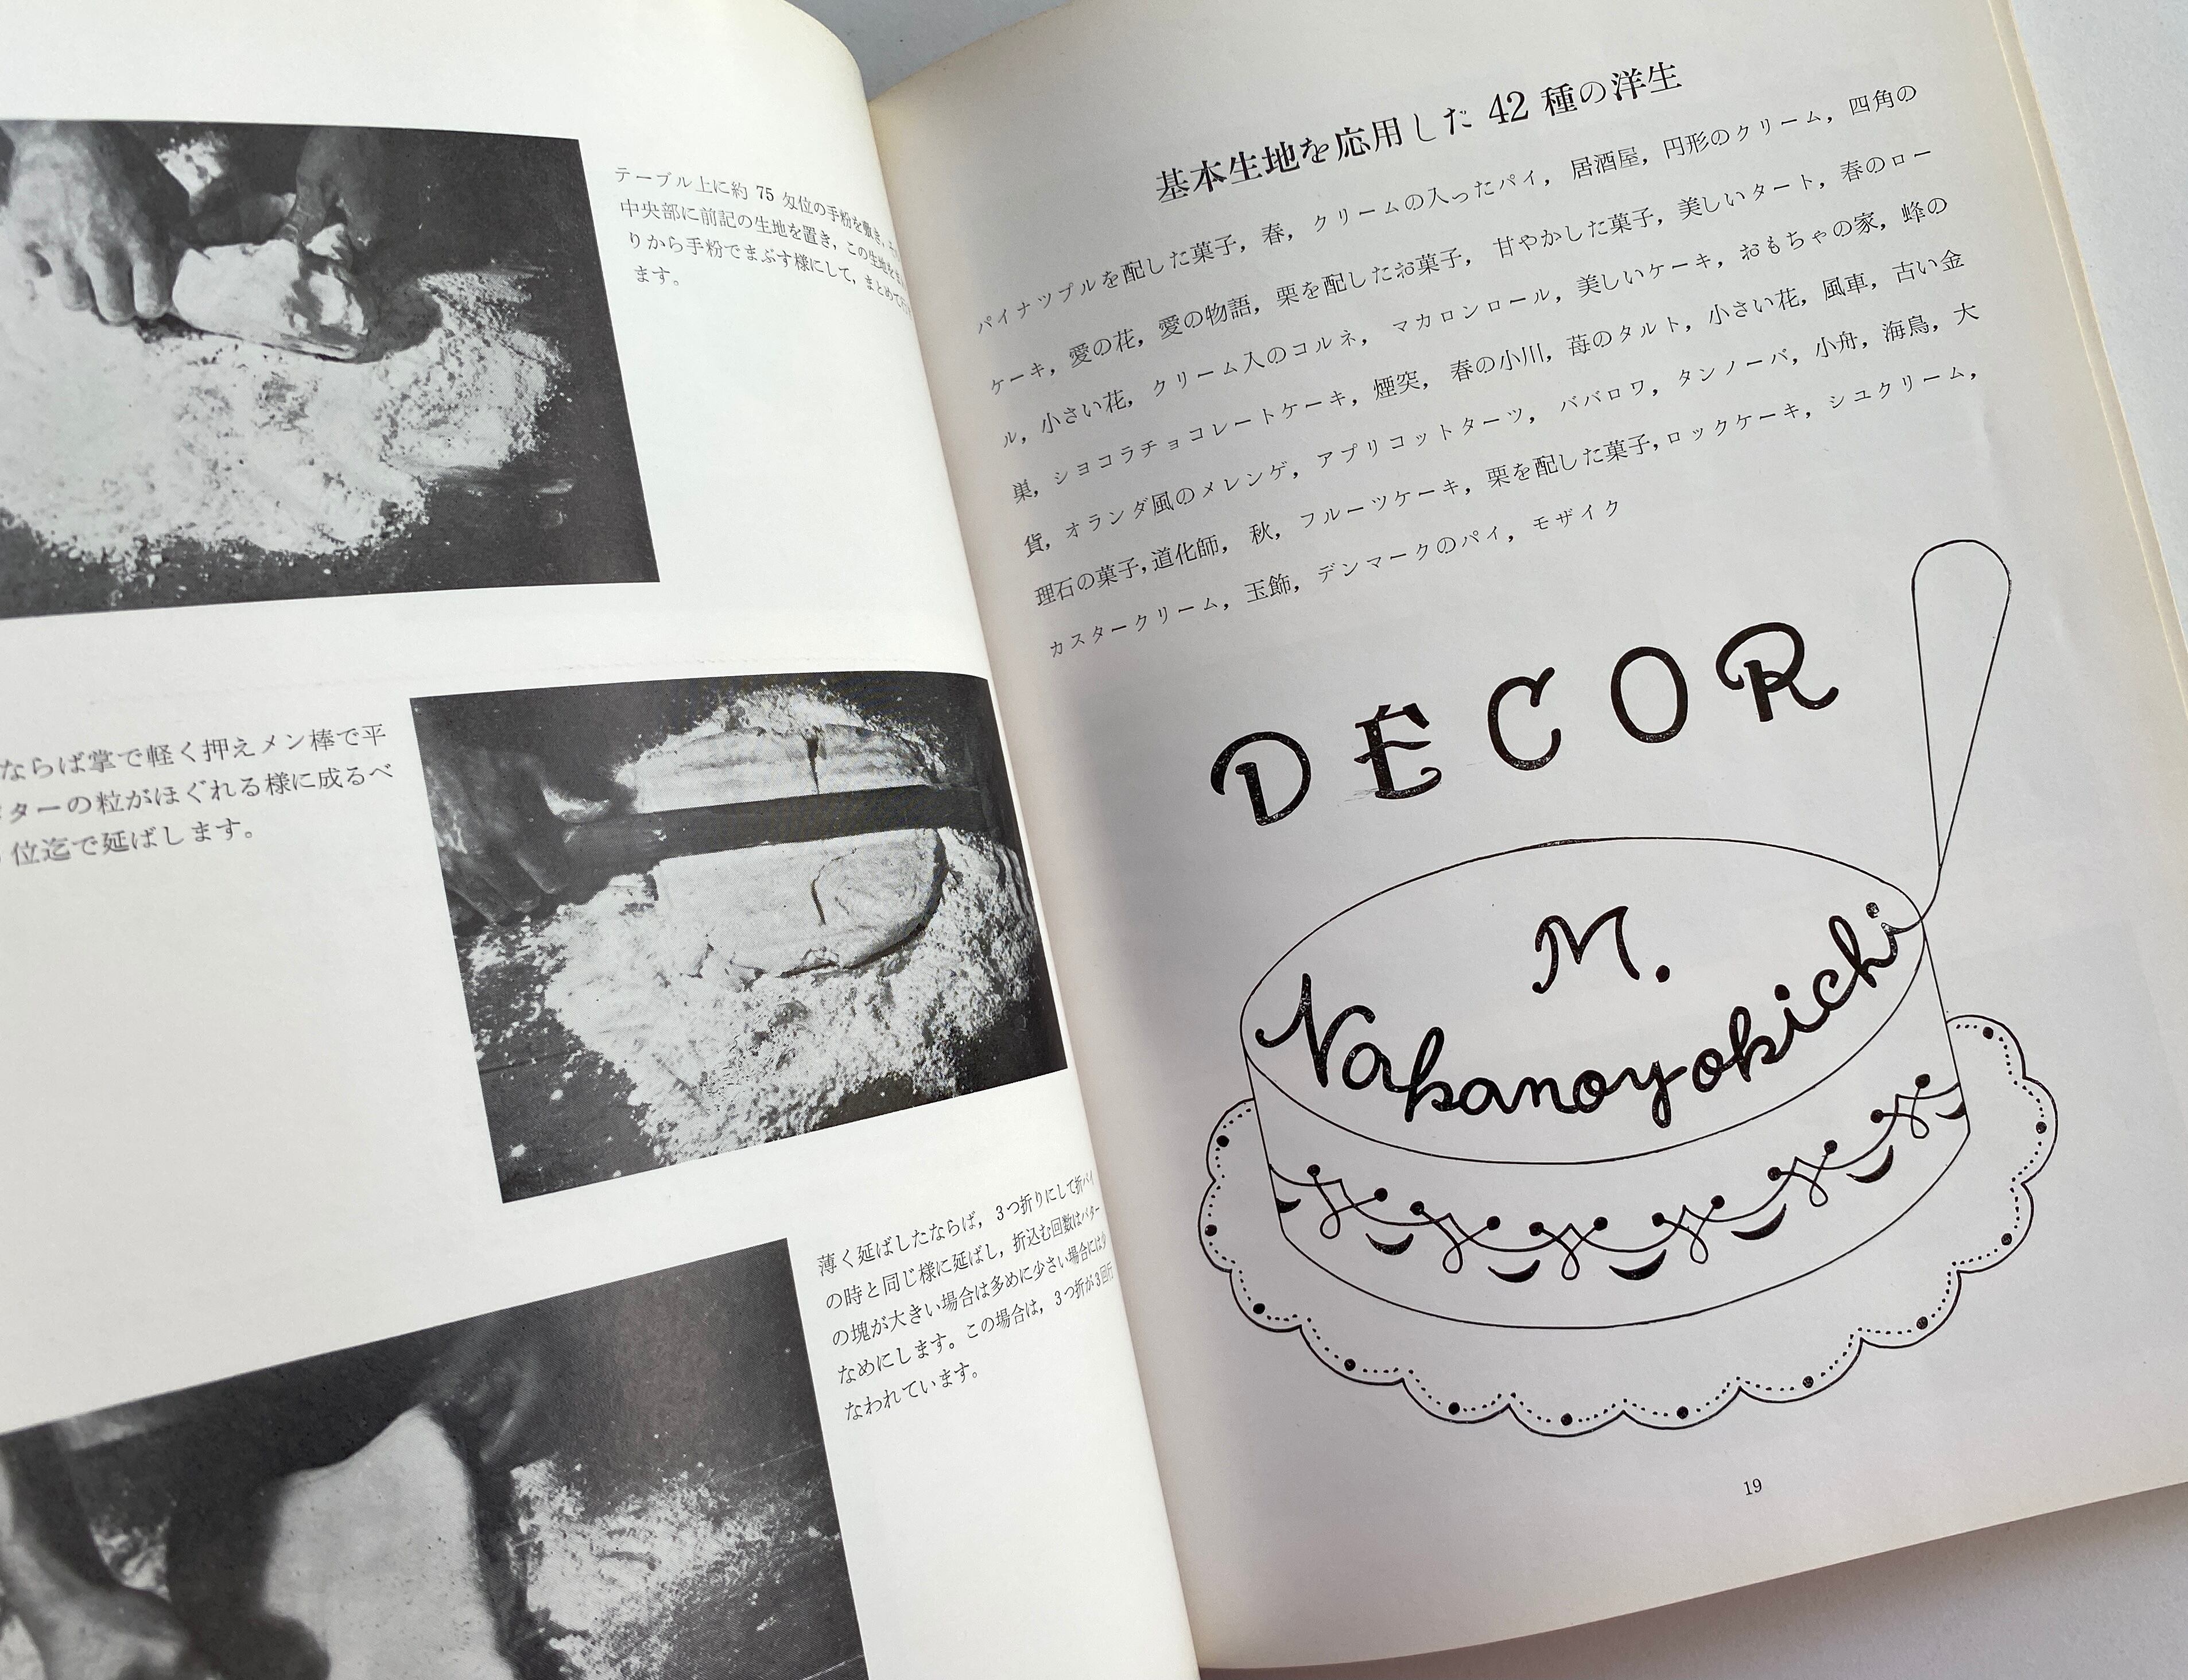 テーブル上に約 75 匁位の手粉を敷き,
中央部に前記の生地を置き, この生地を
りから手粉でまぶす様にして, まとめて
ます。
ならば掌で軽く押えメン棒で平
ターの粒がほぐれる様に成るべ
位迄で延ばします。
薄く延ばしたならば, 3つ折りにして折パイ
の時と同じ様に延ばし, 折込む回数はバター
の塊が大きい場合は多めに少さい場合には少
なめにします。この場合は, 3つ折が3回行
なわれています。
基本生地を応用した 42 種の洋生
パイナツプルを配した菓子, 春, クリームの入ったパイ, 居酒屋, 円形のクリーム, 四角の
ケーキ, 愛の花, 愛の物語, 栗を配したお菓子, 甘やかした菓子, 美しいタート, 春のロー
ル, 小さい花, クリーム入のコルネ, マカロンロール, 美しいケーキ, おもちゃの家, 蜂の
巣, シヨコラチョコレートケーキ, 煙突, 春の小川, 苺のタルト, 小さい花, 風車, 古い金
貨, オランダ風のメレンゲ, アプリコットターツ, ババロワ, タンノーバ, 小舟, 海鳥, 大
理石の菓子, 道化師, 秋, フルーツケーキ, 栗を配した菓子, ロックケーキ, シユクリーム,
カスタークリーム, 玉飾, デンマークのパイ, モザイク
DECOR
M.
Nakanoyokichi
19